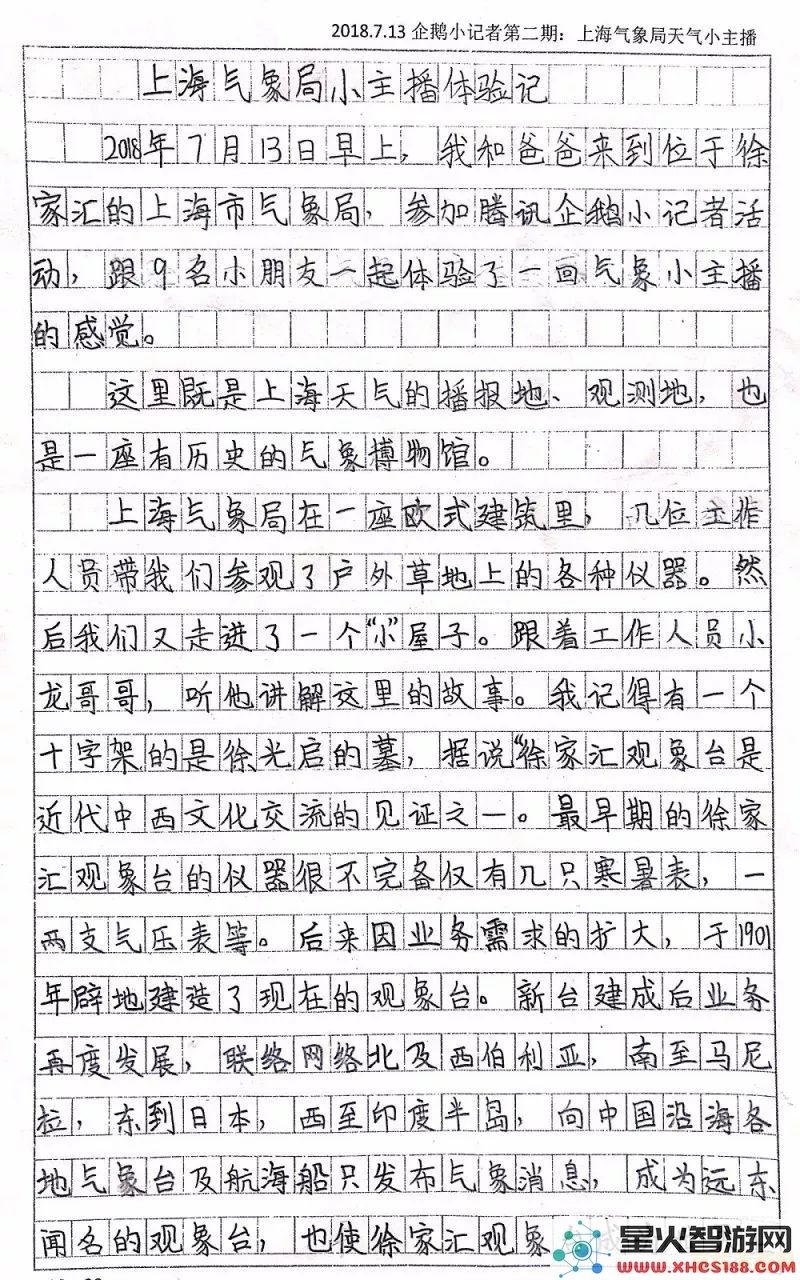 2018.7.13 企鹅小记者第二期：上海气象局天气小主播
上海气象局小主播体验记
2018年7月13日早上，我和爸爸来到位于徐
家汇的上海市气象局，参加腾讯企鹅小记者活
动，跟9名小朋友一起体验了一回气象小主播
的感觉。
这里既是上海天气的播报地、观测地，也
是一座有历史的气象博物馆。
上海气象局在一座欧式建筑里，几位工作
人员带我们参观了户外草地上的各种仪器。然
后我们又走进了一个“小”屋子。跟着工作人员小
龙哥哥，听他讲解这里的故事。我记得有一个
十字架的是徐光启的墓，据说“徐家汇观象台是
近代中西文化交流的见证之一。最早期的徐家
汇观象台的仪器很不完备仅有几只寒暑表，一
两支气压表等。后来因业务需求的扩大，于1901
年辟地建造了现在的观象台。新台建成后业务
再度发展，联络网络北及西伯利亚，南至马尼
拉，东到日本，西至印度半岛，向中国沿海各
地气象台及航海船只发布气象消息，成为远东
闻名的观象台，也使徐家汇观象
星火智游网
www.xhcs188.com